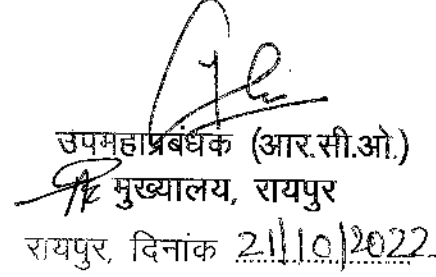 उपमहाप्रबंधक (आर.सी.ओ.)
मुख्यालय, रायपुर
रायपुर, दिनांक 21/10/2022